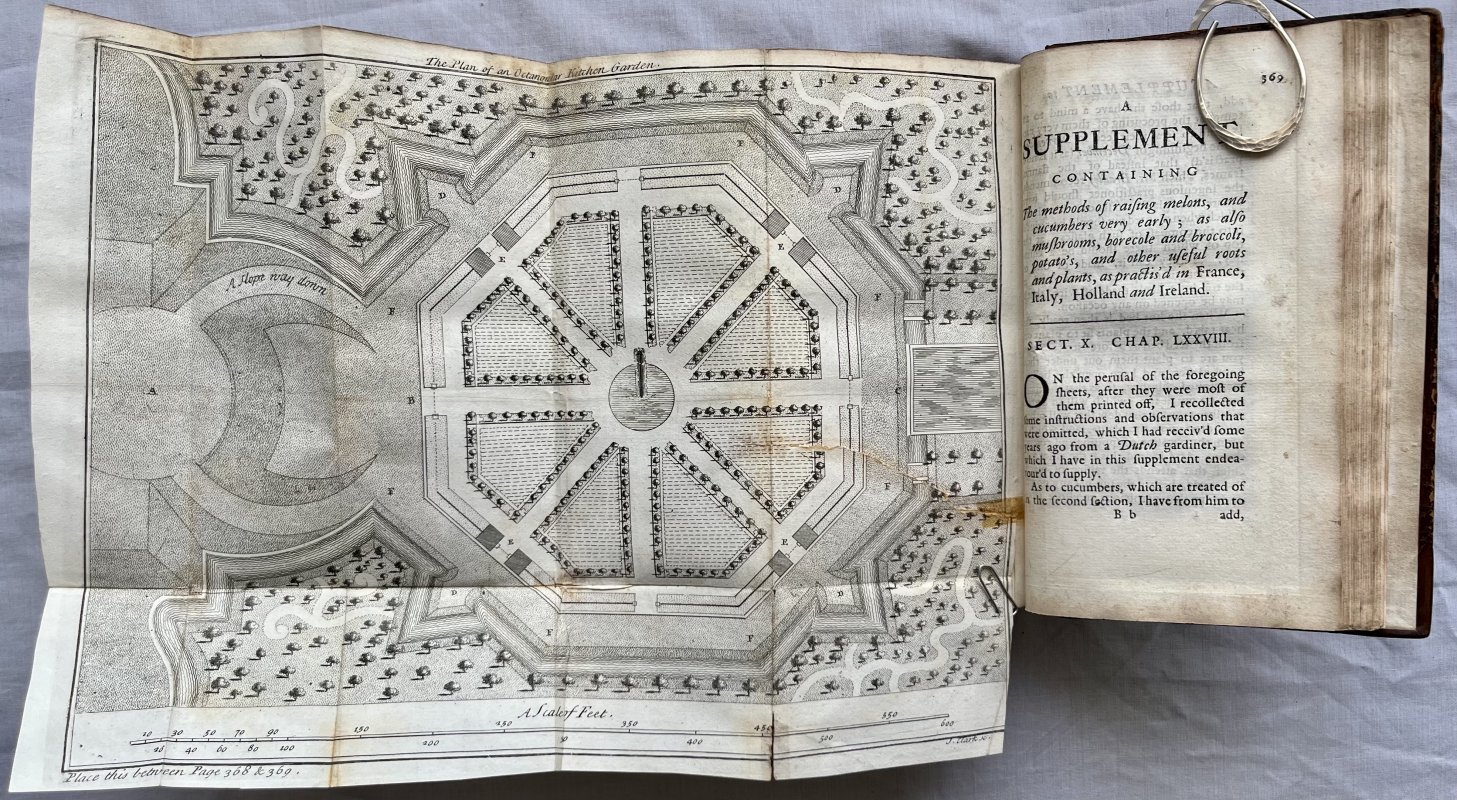 The Plan of an Octangular Kitchen Garden.
F
F
D
D
E
E
A Slope way down
F
F
A
B
C
F
F
E
E
D
D
F
F
A Scale of Feet.
10 30 50 70 90 150 250 350 450 550
20 40 60 80 100 200 400 500 600
Place this between Page 368 & 369.
J. Clark sc.
369
A
SUPPLEMENT
CONTAINING
The methods of raiſing melons, and
cucumbers very early; as alſo
muſhrooms, borecole and broccoli,
potato's, and other uſeful roots
and plants, as practis'd in France,
Italy, Holland and Ireland.
SECT. X. CHAP. LXXVIII.
ON the peruſal of the foregoing
ſheets, after they were moſt of
them printed off, I recollected
ſome inſtructions and obſervations that
were omitted, which I had receiv'd ſome
years ago from a Dutch gardiner, but
which I have in this ſupplement endea-
vour'd to ſupply.
As to cucumbers, which are treated of
in the ſecond ſection, I have from him to
B b add,